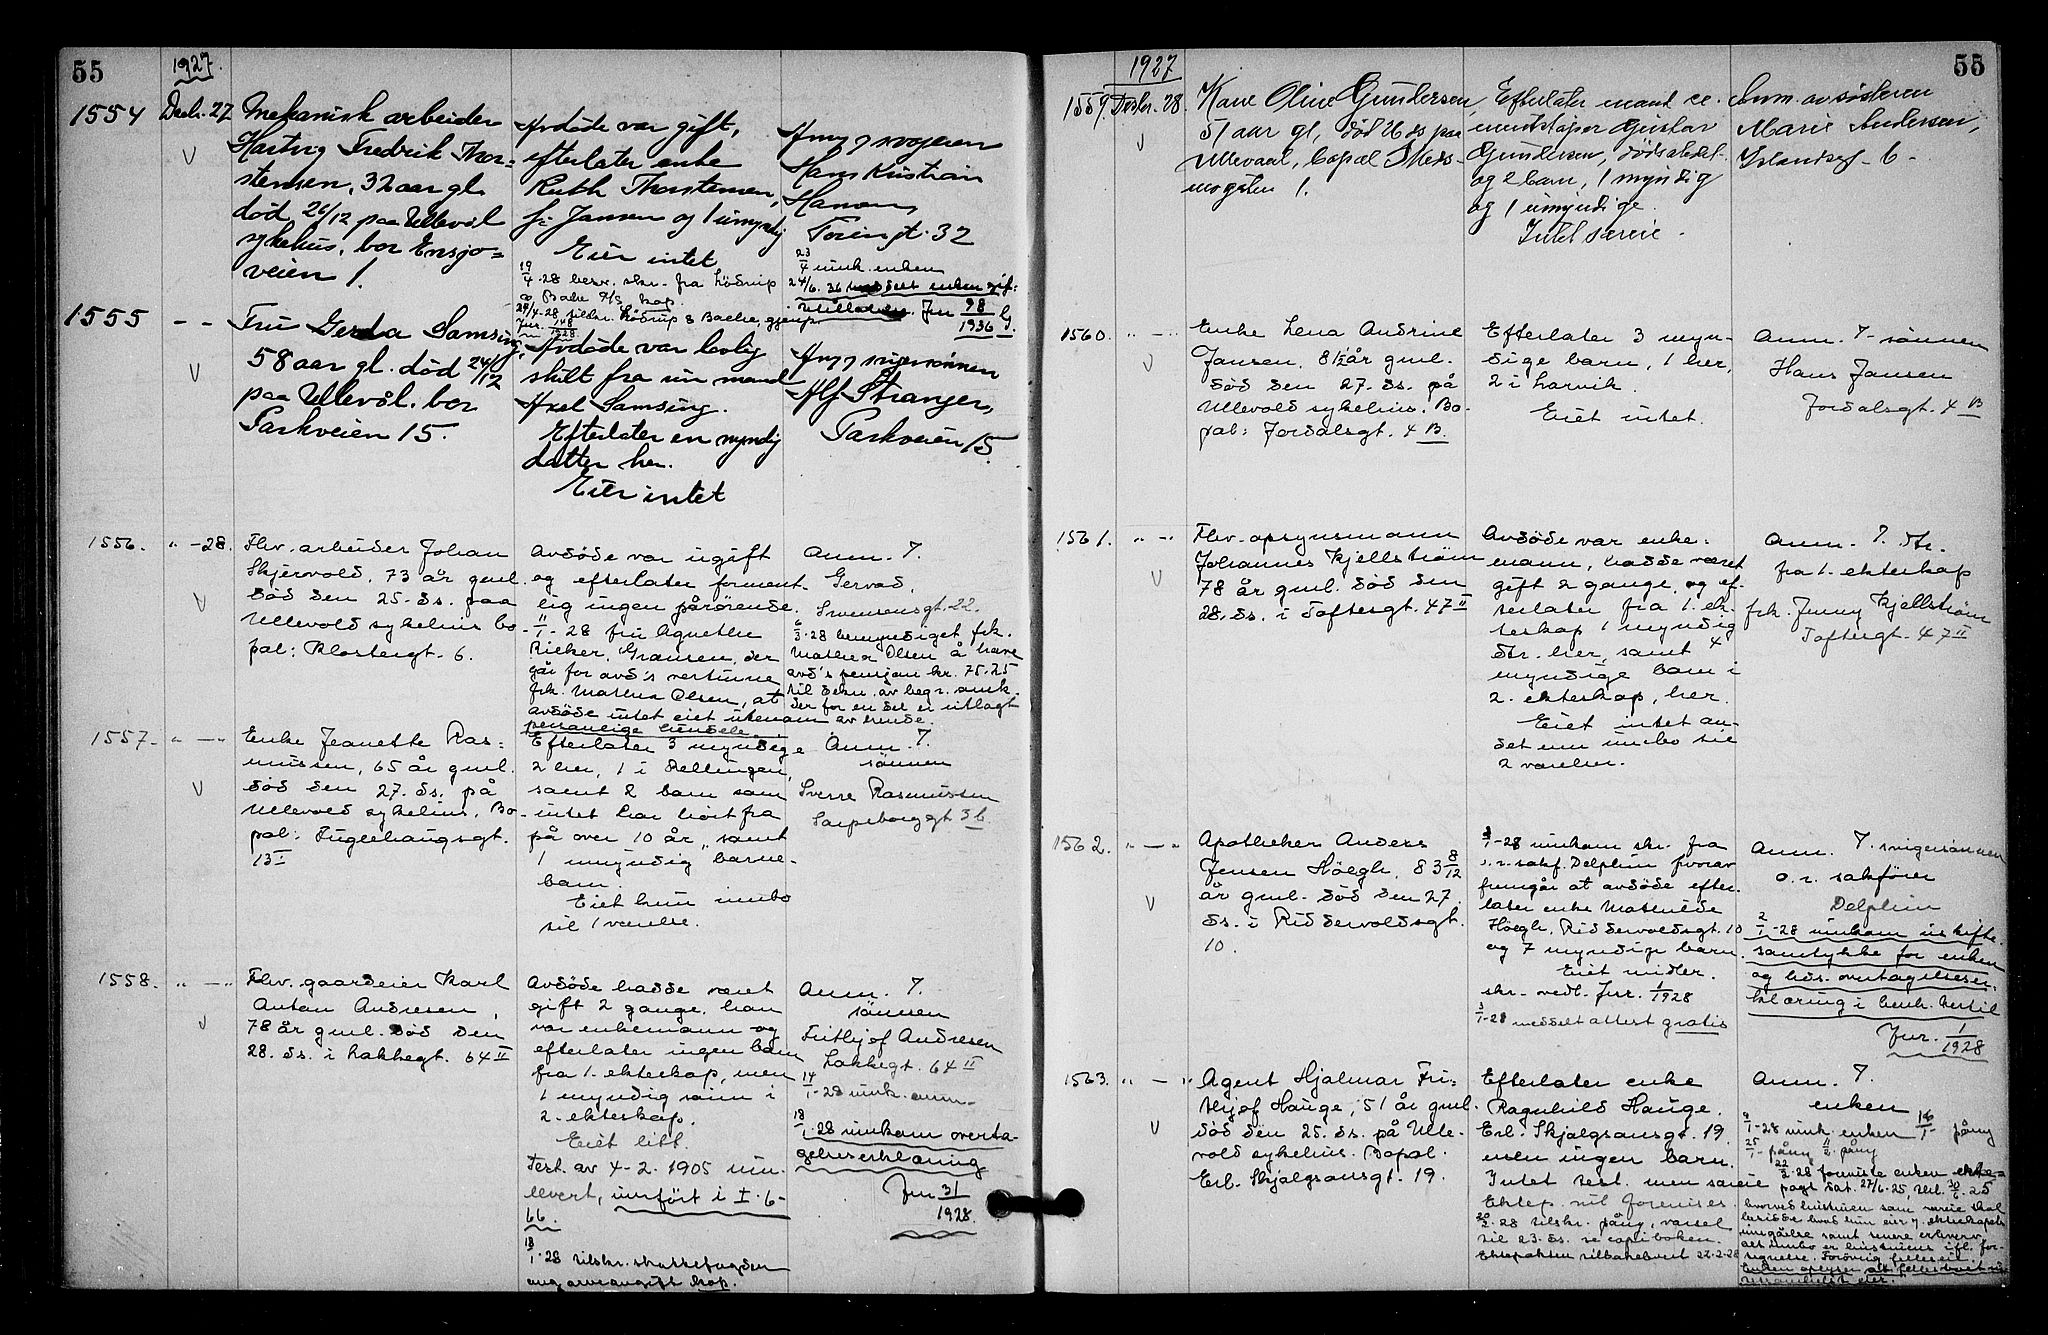 55
1927.
1554 Decbr. 27
Mekanisk arbeider
Hartvig Fredrik Thor=
stensen, 32 aar gl.
død 26/12 paa Ullevål
sykehus, bor Ensjø=
veien 1.
Avdøde var gift,
efterlater enke
Ruth Thorstensen,
f. Jansen og 1 umyndig
Eier intet
19/4-28 besv. skr. fra Lödrup
& Bache A/S kop.
24/4-28 tilskr. Lödrup & Bache, gjenp.
Jur. 148/1928
Anm
Hans Kristian
Hansen
23/4 innk. enken
24/6. 36 meddelt enken gif:
Jur 98/1936
1555 - -
Fru Gerda Samsing,
58 aar gl. død 24/12
paa Ullevål. bor
Parkveien 15.
Avdøde var lovlig
skilt fra sin mand
Axel Samsing.
Efterlater en myndig
datter her.
Eier intet
Anm svigersønnen
Alf Stranger,
Parkveien 15.
1556. " -28.
Fhv. arbeider Johan
Skjervold, 73 år gml.
død den 25. ds. paa
Ullevold sykehus bo
pal: Klostergt. 6.
Avdøde var ugift
og efterlater forment-
lig ingen pårørende.
11/1-28 fru Agnethe
Rieker, Grænsen, der
går for avd's vertinne
frk. Mathea Olsen, at
avdøde intet eiet utenom
personlige eiendele.
Anm. 7.
Gervad,
Svensensgt. 22.
6/3-28 bemyndiget frk.
Mathea Olsen å hæve
avd's pensjon kr. 75.25
til dekn. av begr. omk.
der for en del er utlagt
av hende.
1557. " — "
Enke Jeanette Ras=
mussen, 65 år gml.
död den 27. ds. på
Ullevold sykehus. Bo
pal: Fuglehaugsgt.
13 I
Efterlater 3 myndige
2 her, 1 i Kellingen,
samt 2 barn som
intet har hört fra
på over 10 år, samt
1 umyndig barne-
barn.
Eiet kun innbo
til 1 værelse.
Anm. 7.
sönnen
Sverre Rasmussen
Sarpsborggt 3 b.
1558. " — "
Fhv. gaardeier Karl
Anton Andresen,
78 år gml. död den
28. ds. i Lakkegt. 64 II
Avdöde hadde været
gift 2 gange, han
var enkemann og
efterlater ingen barn
fra 1. ekteskap, men
1 myndig sönn i
2. ekteskap.
Eiet litt.
Test. av 4-2. 1905 inn-
levert, innfört i I. 6-
66.
18/1-28 tilskr. skattefogden
ang. arveavgift kop.
Anm. 7.
sönnen
Fritjof Andresen
Lakkegt. 64 II
14/1-28 innk. anm.
18/1-28 innkom overta-
gelseserklæring
Jur 31/1928.
55
1927
1559. Decbr. 28.
Kaue Oline Gundersen,
51 aar gl, død 26 ds paa
Ullevaal, bopæl Meds-
mogaten 1.
Efterlater mand
Gustav
Gundersen, dødsstedet
og 2 barn, 1 myndig
og 1 umyndige.
Intet særeie.
Anm. av søsteren
Marie Andersen,
Islandsgt - 6 -
1560. " — "
Enke Lena Andrine
Jansen. 81½ år gml.
död den 27. ds. på
Ullevold sykehus. Bo-
pal: Jordalsgt. 4 B.
Efterlater 3 myn-
dige barn, 1 her,
2 i Larvik.
Eiet intet.
Anm. 7. sönnen
Hans Jansen
Jordalsgt. 4 B
1561. " — "
Fhv. opsynsmann
Johannes Kjellström
78 år gml. död den
28. ds. i Toftesgt. 47 II
Avdöde var enke-
mann, hadde været
gift 2 gange, og ef-
terlater fra 1. ek-
teskap 1 myndig
dtr. her, samt 4
myndige barn i
2. ekteskap, her.
Eiet intet an-
det enn innbo til
2 værelser.
Anm. 7. dtr.
fra 1. ekteskap
frk. Jenny Kjellström
Toftesgt. 47 II
1562. " — "
Apotheker Anders
Jensen Höegh, 83 8/12
år gml. död den 27.
ds. i Riddervoldsgt.
10.
3/1-28 innkom skr. fra
o.r. sakf. Delphin hvorav
fremgår at avdöde efter-
later enke Mathilde
Höegh, Riddervoldsgt. 10
og 7 myndige barn.
Eiet midler.
skr. vedl. Jur. 1/1928
3/1-28 meddelt attest gratis
Anm. 7. svigersönnen
o.r. sakförer
Delphin
2/1-28 innkom uskifte-
samtykke for enken
og hds. overtagelseser-
klæring i henh. hertil
Jur. 1/1928
1563. " — "
Agent Hjalmar Fri-
thjof Hauge, 51 år gml.
död den 25. ds. på Ulle-
vold sykehus. Bopal.
Erl. Skjalgsønsgt. 19.
Efterlater enke
Ragnhild Hauge.
Erl. Skjalgsønsgt. 19
men ingen barn.
Intet test. men særeie
Ektep. vil forevises.
20/2-28 tilskr. påny, varsel
til 23. ds. se copiboken.
Ektepakten tilbakelevert 22-2-28
Anm. 7.
enken
9/1-28 innk. enken 16/1- påny
25/1- påny 11/2. påny
22/2-28 foreviste enken ekte=
pagt dat. 27/6-25, tinl. 30/6. 25
hvorved hustruen som særeie skal
besidde hvad hun eier v. ekteskapets
inngåelse samt senere erhverv.